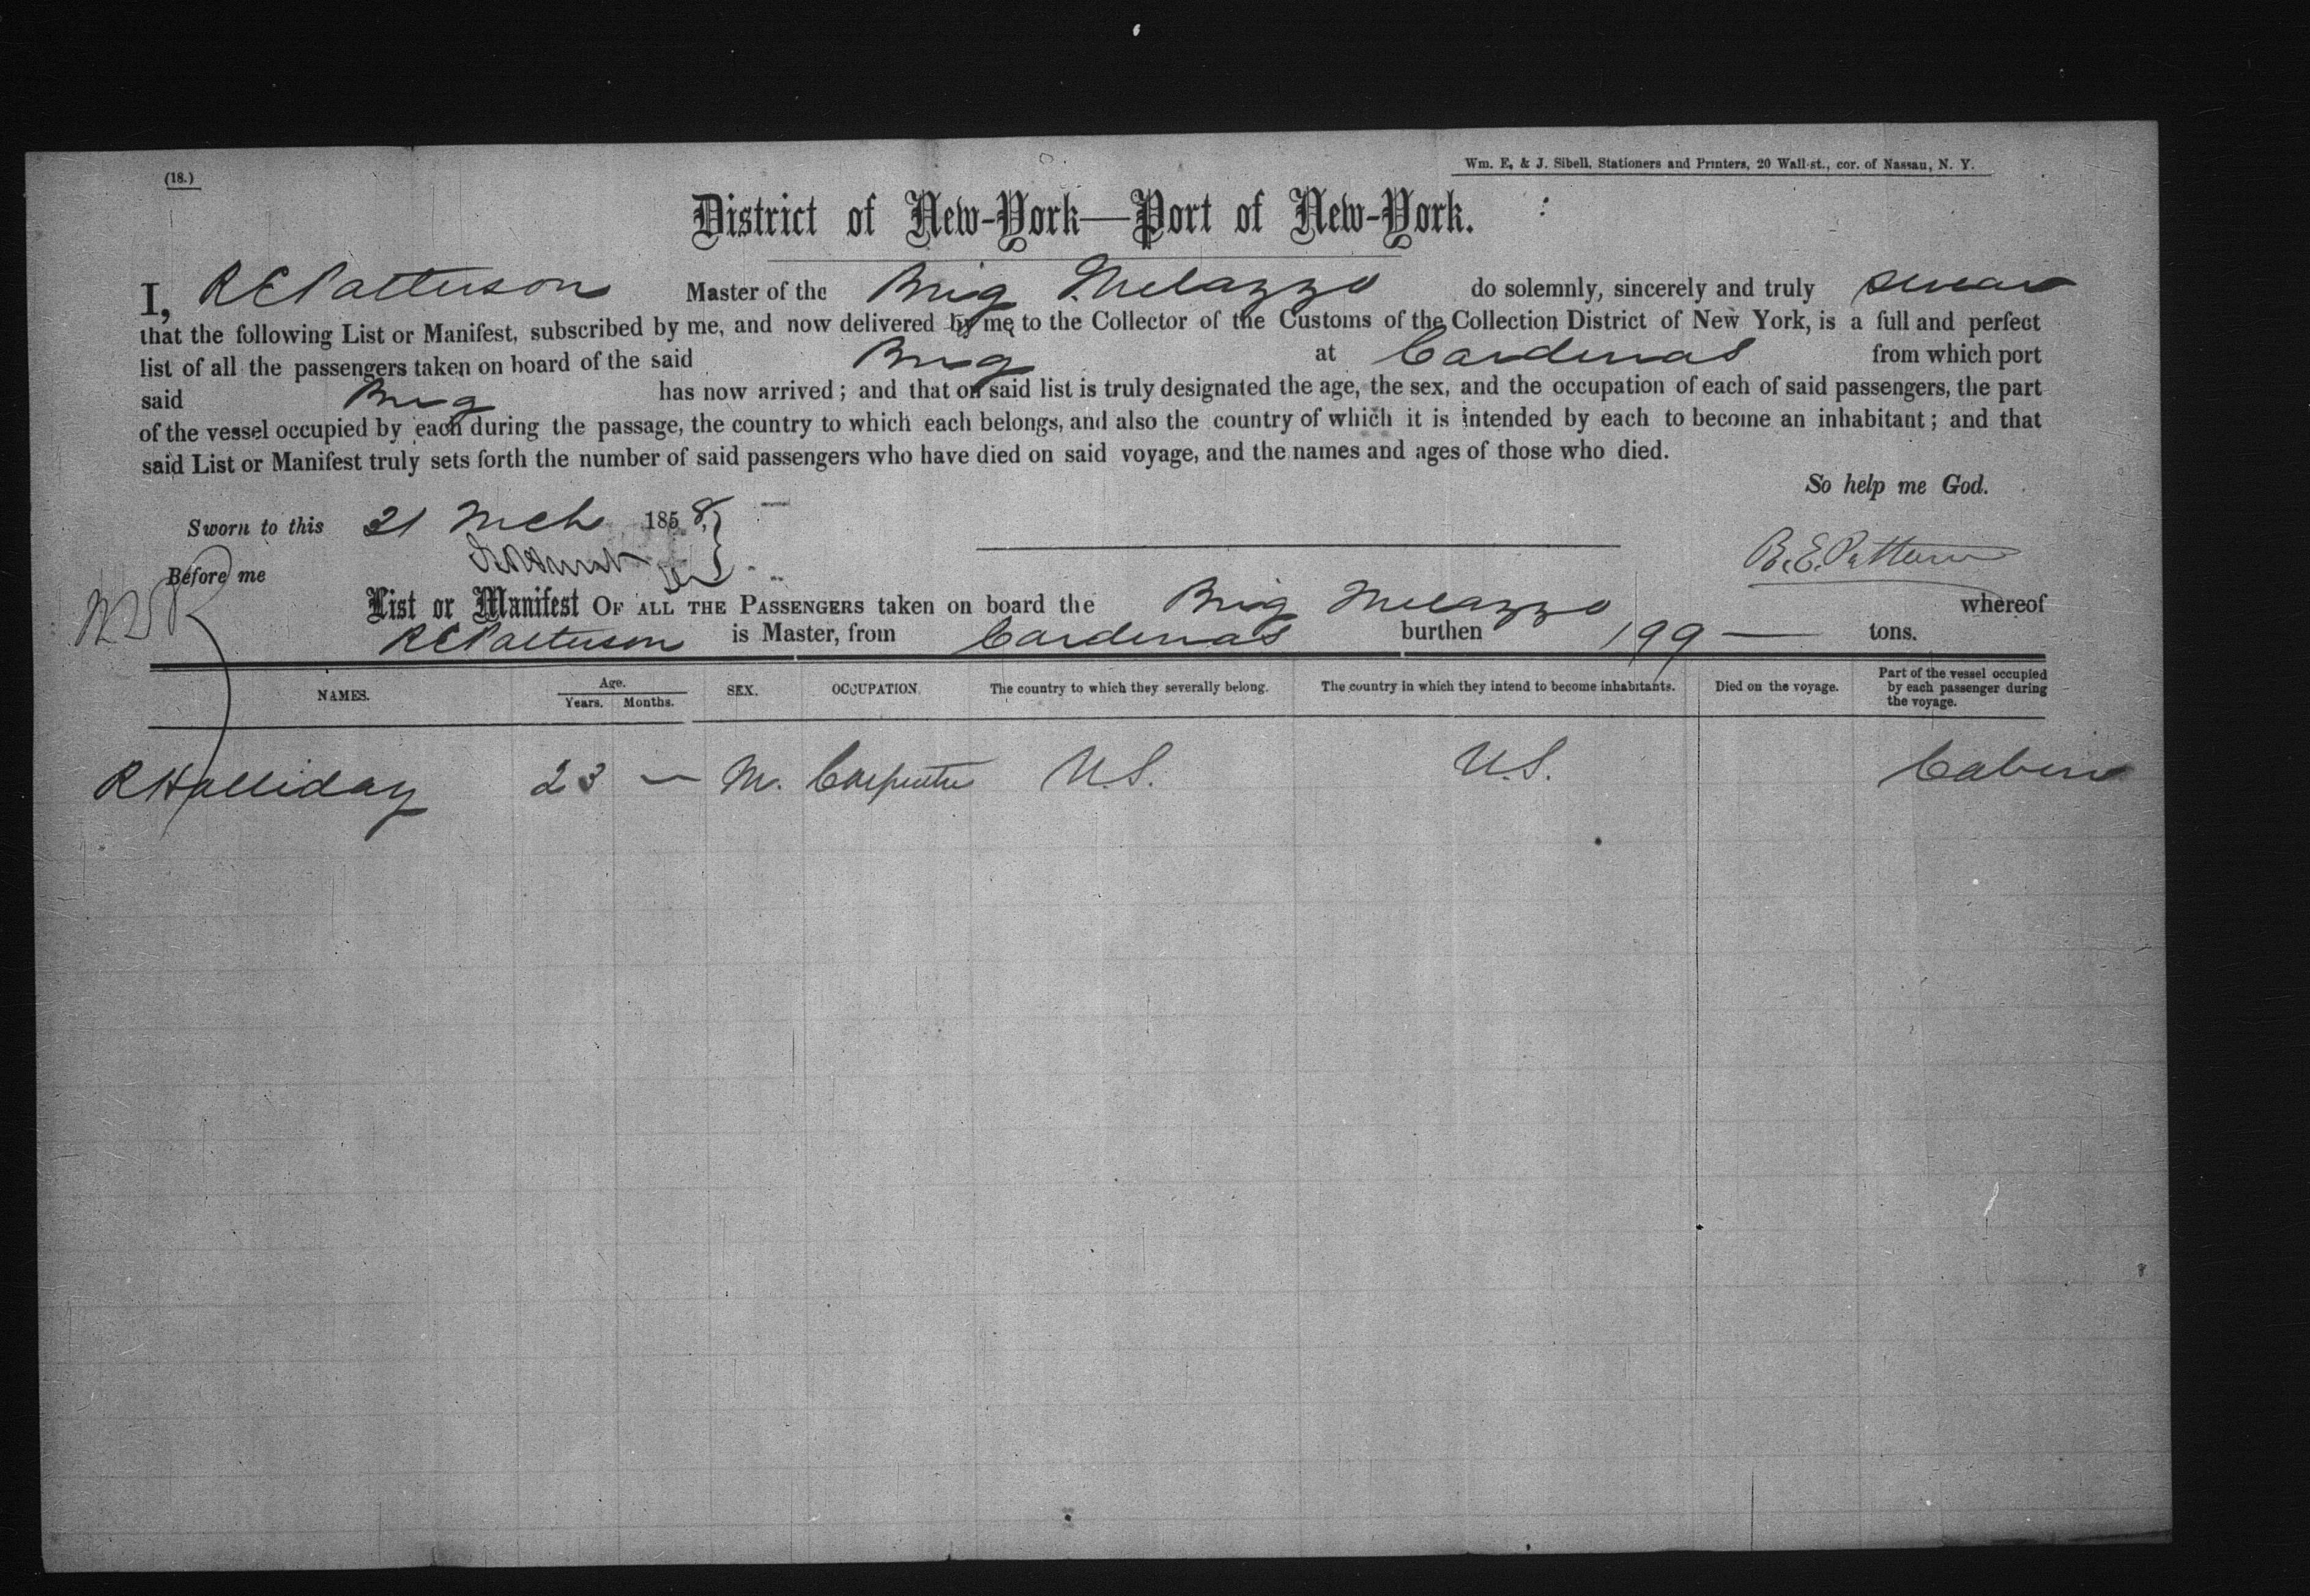 (18.)
Wm. E. & J. Sibell, Stationers and Printers, 20 Wall-st., cor. of Nassau, N. Y.
District of New-York—Port of New-York.
I, R E Patterson Master of the Brig Melazzo do solemnly, sincerely and truly swear
that the following List or Manifest, subscribed by me, and now delivered by me to the Collector of the Customs of the Collection District of New York, is a full and perfect
list of all the passengers taken on board of the said Brig at Cardenas from which port
said Brig has now arrived; and that on said list is truly designated the age, the sex, and the occupation of each of said passengers, the part
of the vessel occupied by each during the passage, the country to which each belongs, and also the country of which it is intended by each to become an inhabitant; and that
said List or Manifest truly sets forth the number of said passengers who have died on said voyage, and the names and ages of those who died.
So help me God.
Sworn to this 21 Mch 1858,
R. E. Patterson
Before me
List or Manifest OF ALL THE PASSENGERS taken on board the Brig Melazzo whereof
R E Patterson is Master, from Cardenas burthen 199 — tons.
NAMES. Age. Years. Months. SEX. OCCUPATION. The country to which they severally belong. The country in which they intend to become inhabitants. Died on the voyage. Part of the vessel occupied by each passenger during the voyage.
R Halliday 23 — M. Carpenter U.S. U.S. Cabin